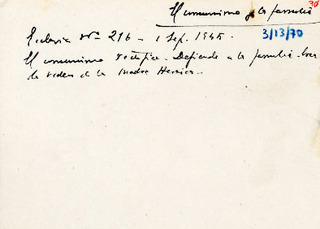 30
El comunismo y la familia
Ecclesia Nº 216 - 1 Sep. 1945.
3/13/70
El comunismo rectifica. Defiende a la familia. Crea
la orden de la Madre Heroica.-